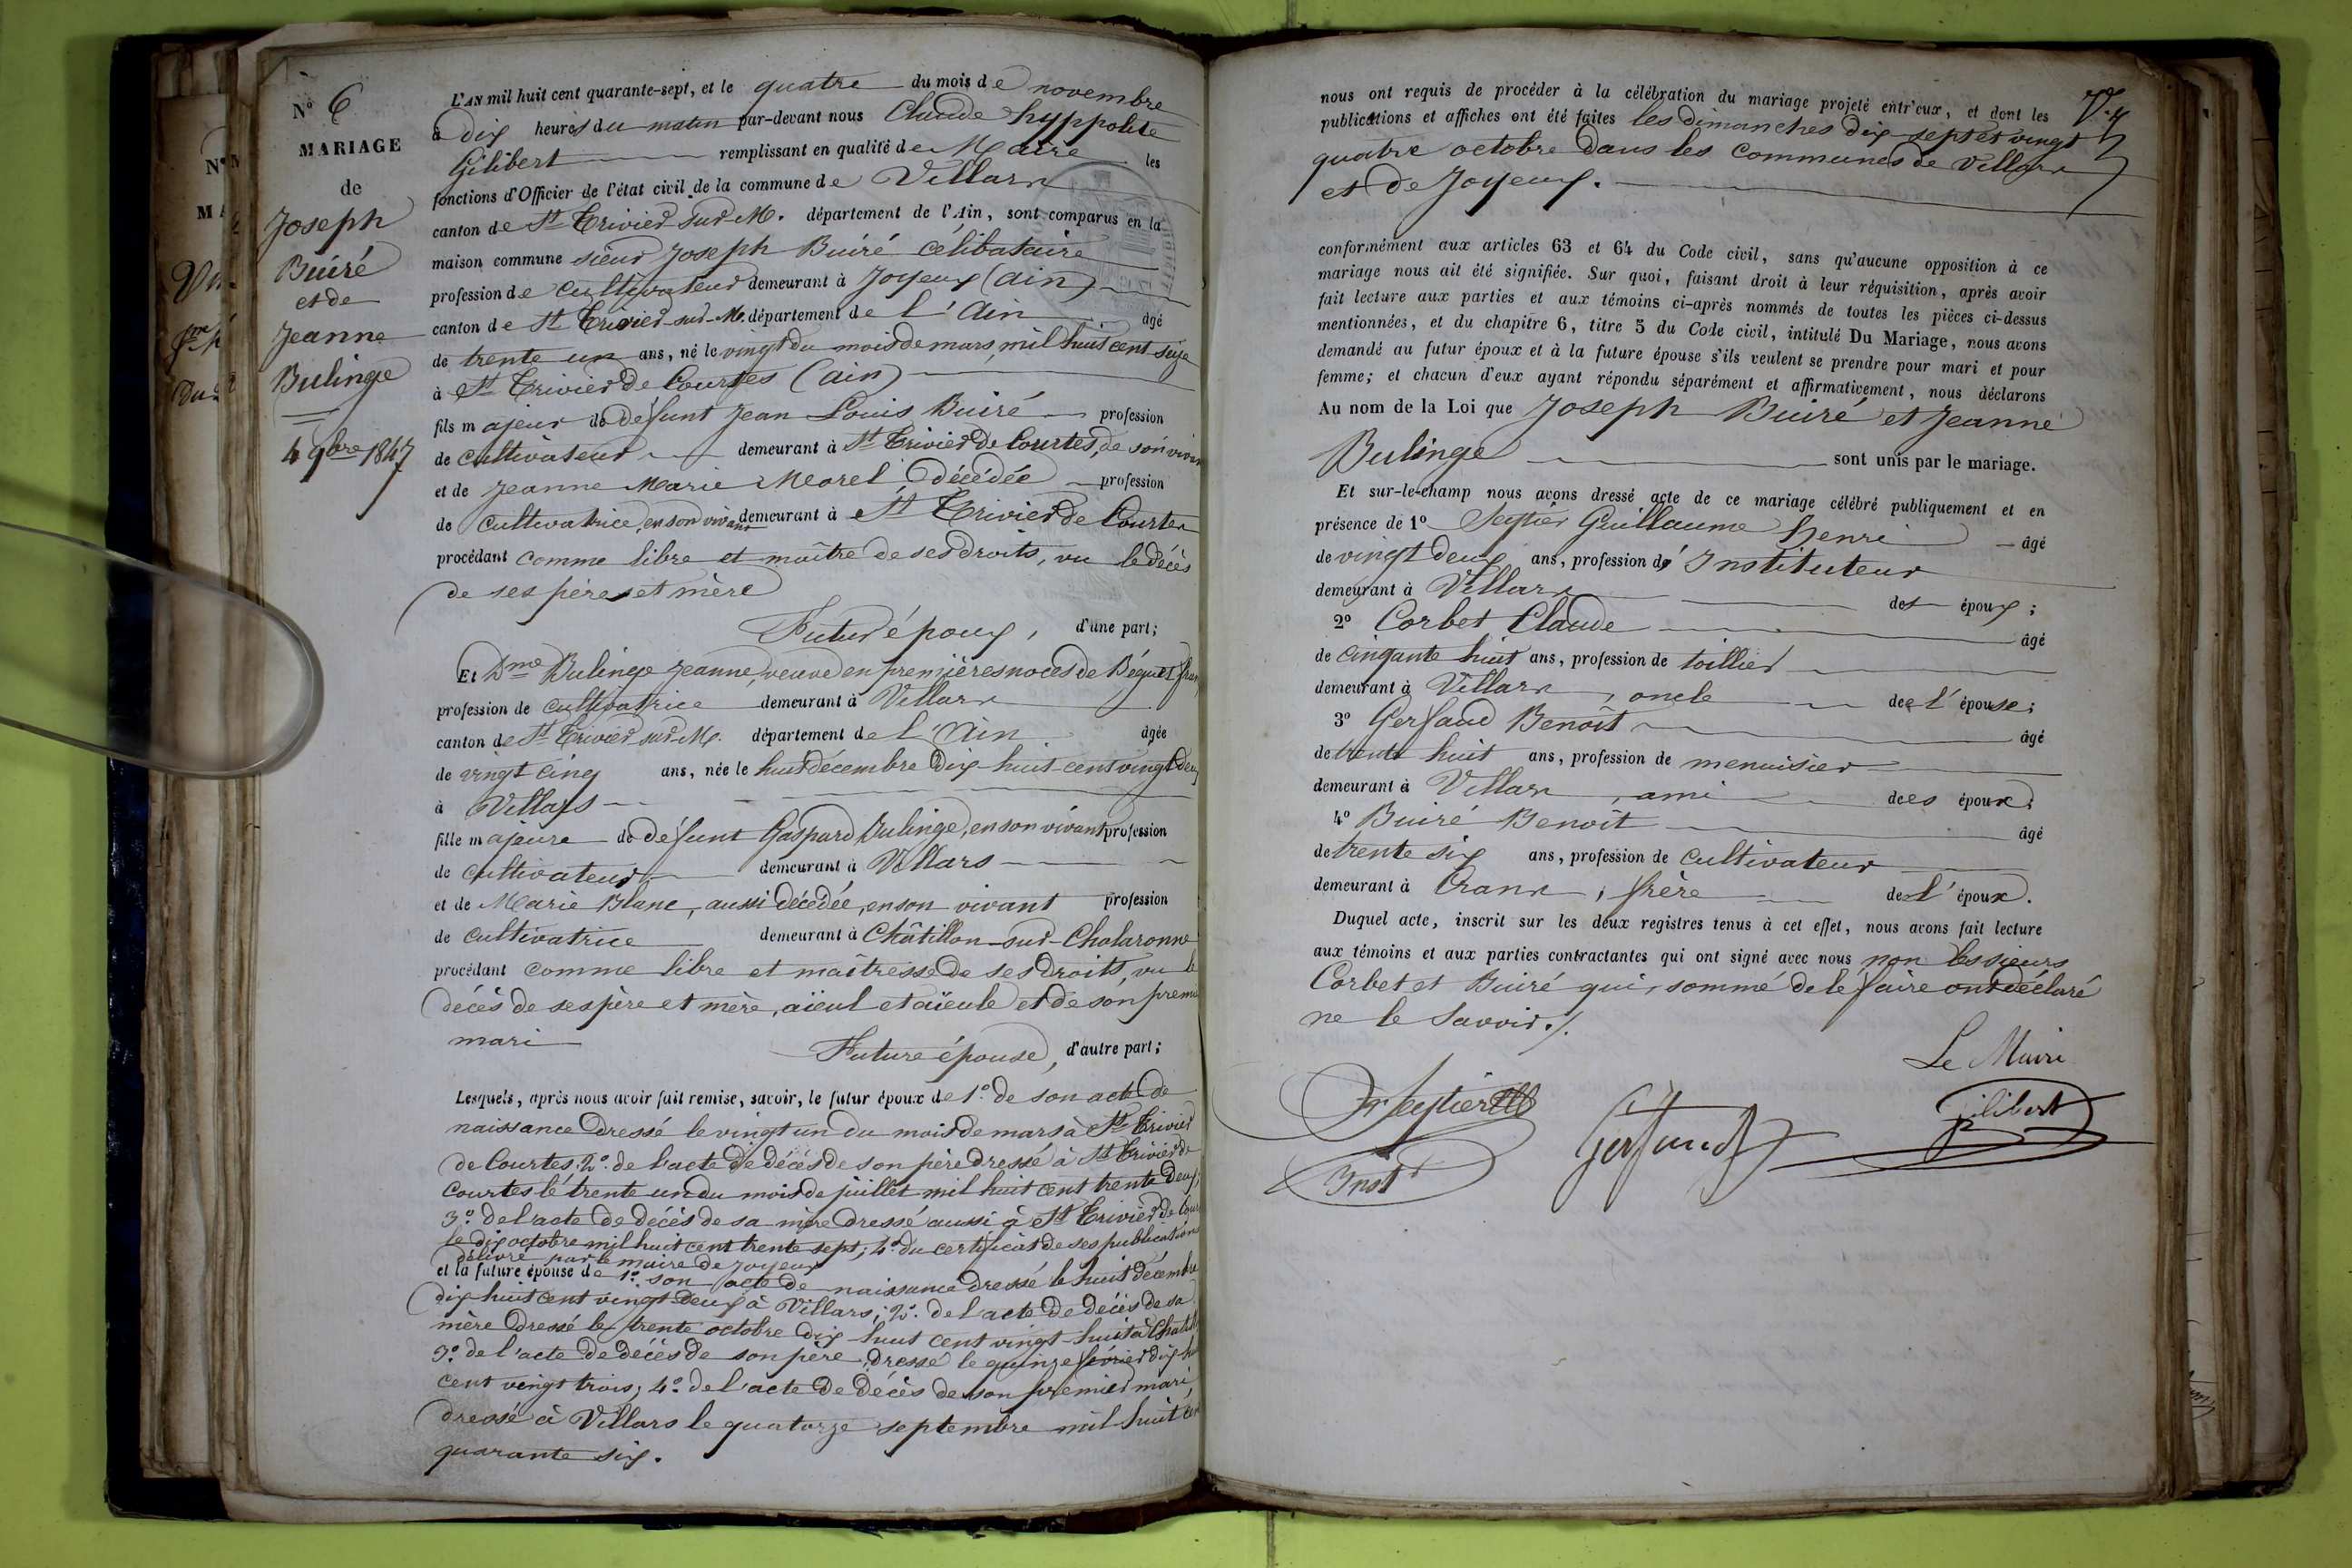 N° 6
MARIAGE
de
Joseph
Buiré
et de
Jeanne
Bulinge
4 9bre 1847
L'AN mil huit cent quarante-sept, et le quatre du mois de novembre
à dix heures du matin par-devant nous Claude hyppolite
Gilibert remplissant en qualité de Maire les
fonctions d'Officier de l'état civil de la commune de Villars
canton de St Trivier sur M. département de l'Ain, sont comparus en la
maison commune sieur Joseph Buiré célibataire
profession de cultivateur demeurant à Joyeux (ain)
canton de St Trivier-sur-M. département de l'Ain âgé
de trente un ans, né le vingt du mois de mars, mil huit cent seize
à St Trivier de Courtes (ain)
fils majeur de défunt Jean Louis Buiré profession
de cultivateur demeurant à St Trivier de Courtes, de son vivan
et de Jeanne Marie Morel décédée profession
de cultivatrice, en son vivant demeurant à St Trivier de Courtes
procédant comme libre et maître de ses droits, vu le décès
de ses père et mère
Futur époux, d'une part;
Et Dme Bulinge Jeanne, veuve en premières noces de Béguet fran
profession de cultivatrice demeurant à Villars
canton de St Trivier sur M. département de l'Ain âgée
de vingt cinq ans, née le huit décembre dix-huit-cent vingt deux
à Villars
fille majeure de défunt Gaspard Bulinge, en son vivant profession
de cultivateur demeurant à Villars
et de Marie Blanc, aussi décédée, en son vivant profession
de cultivatrice demeurant à Châtillon-sur-Chalaronne
procédant comme libre et maîtresse de ses droits, vu le
décès de ses père et mère, aïeul et aïeule et de son premi
mari
Future épouse, d'autre part;
Lesquels, après nous avoir fait remise, savoir, le futur époux de 1° de son acte de
naissance dressé le vingt un du mois de mars à St Trivier
de Courtes; 2° de l'acte de décès de son père dressé à St Trivier de
Courtes le trente un du mois de juillet mil huit cent trente deux,
3° de l'acte de décès de sa mère dressé aussi à St Trivier de Cour
le dix octobre mil huit cent trente sept; 4° du certificat de ses publications
délivré par le maire de Joyeux
et la future épouse de 1° son acte de naissance dressé le huit décembre
dix huit cent vingt deux à Villars; 2° de l'acte de décès de sa
mère dressé le trente octobre dix-huit cent vingt-huit à Chatill
3° de l'acte de décès de son père, dressé le quinze février dix hui
cent vingt trois; 4° de l'acte de décès de son premier mari,
dressé à Villars le quatorze septembre mil huit cen
quarante six.
nous ont requis de procéder à la célébration du mariage projeté entr'eux, et dont les
publications et affiches ont été faites les dimanches dix-sept et vingt
quatre octobre dans les communes de Villars
et de Joyeux.
conformément aux articles 63 et 64 du Code civil, sans qu'aucune opposition à ce
mariage nous ait été signifiée. Sur quoi, faisant droit à leur réquisition, après avoir
fait lecture aux parties et aux témoins ci-après nommés de toutes les pièces ci-dessus
mentionnées, et du chapitre 6, titre 5 du Code civil, intitulé Du Mariage, nous avons
demandé au futur époux et à la future épouse s'ils veulent se prendre pour mari et pour
femme; et chacun d'eux ayant répondu séparément et affirmativement, nous déclarons
Au nom de la Loi que Joseph Buiré et Jeanne
Bulinge sont unis par le mariage.
Et sur-le-champ nous avons dressé acte de ce mariage célébré publiquement et en
présence de 1° Seytier Guillaume henri âgé
de vingt deux ans, profession d' Instituteur
demeurant à Villars des époux;
2° Corbet Claude âgé
de cinqante huit ans, profession de toillier
demeurant à Villars, oncle de l'épouse;
3° Gerfaud Benoît âgé
de trente huit ans, profession de menuisier
demeurant à Villars, ami des époux;
4° Buiré Benoît âgé
de trente six ans, profession de cultivateur
demeurant à Crans, frère de l'époux.
Duquel acte, inscrit sur les deux registres tenus à cet effet, nous avons fait lecture
aux témoins et aux parties contractantes qui ont signé avec nous non les sieurs
Corbet et Buiré qui, sommé de le faire ont déclaré
ne le savoir./.
Le Maire
Seytier
Instr
Gerfaud
Gilibert